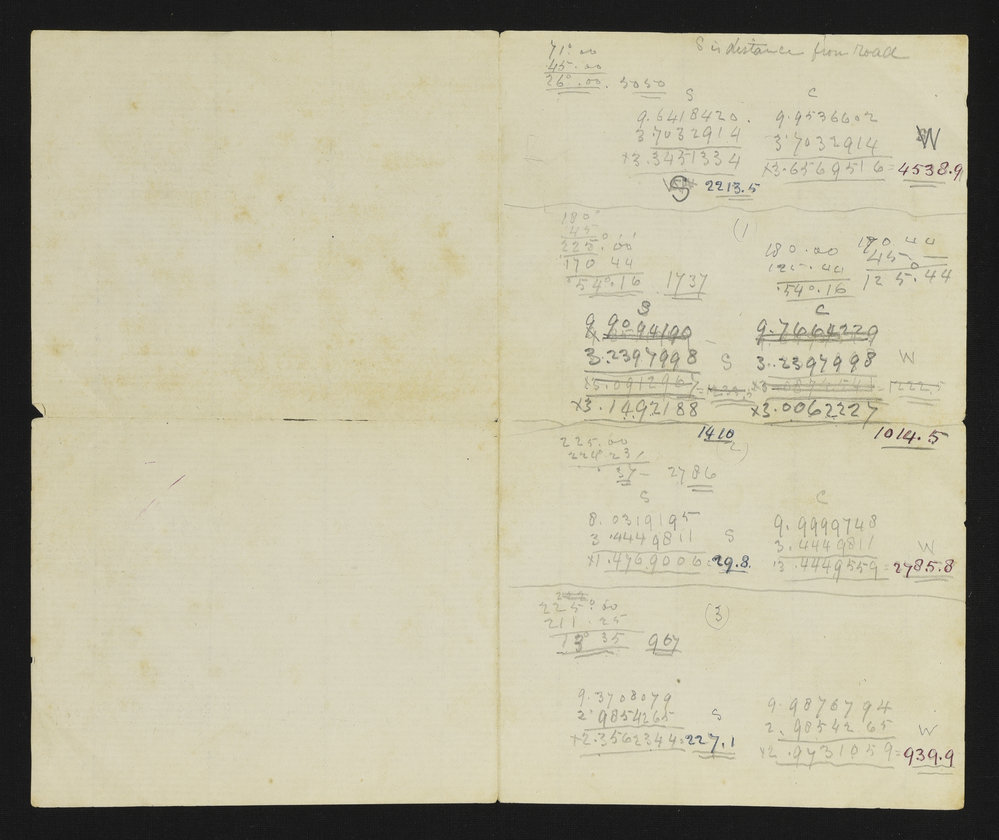 71°.00 S is distance from road
45.00
26°.00. 5050
S C
9.6418420. 9.9536602
3.7032914 3.7032914 W
×3.3451334 ×3.6569516= 4538.9
S 2213.5
180°
45 (1)
225°.00 180.00 170 44
170 44 125.44 45
54°.16 1737 54°.16 125°.44
S C
9.9094190 9.7664229
3.2397998 S 3.2397998 W
×3.1492188 ×3.0062227
1410 1014.5
225.00 (2)
224.23
37 2786
S C
8.0319195 9.9999748
3.4449811 S 3.4449811 W
×1.4769006=29.8 3.4449559=2785.8
225°.00 (3)
211.25
13° 35 967
9.3708079 9.9876794
2.9854265 S 2.9854265 W
×2.3562344=227.1 ×2.9731059=939.9